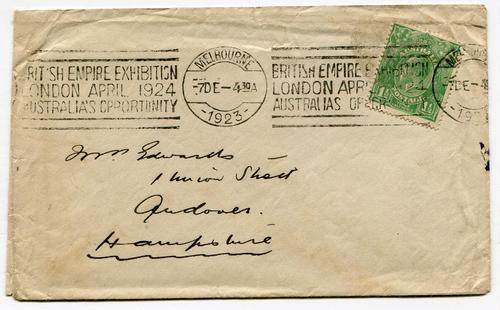 BRITISH EMPIRE EXHIBITION
LONDON APRIL 1924
AUSTRALIA'S OPPORTUNITY
MELBOURNE
-7DE-4.30A
-1923-
BRITISH EMPIRE EXHIBITION
LONDON APR
AUSTRALIA'S OPPOR
Mrs Edwards
1 Union Street
Andover.
Hampshire